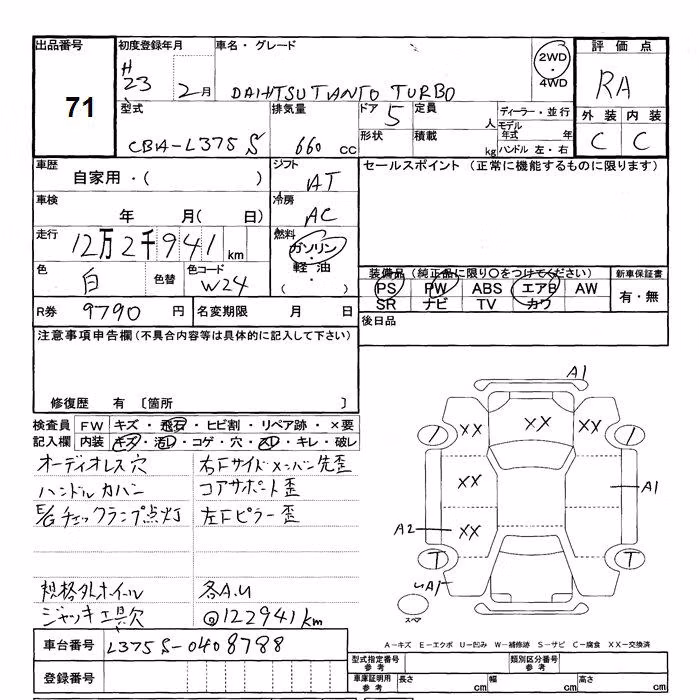 出品番号
71
初度登録年月
H
23
2月
車名・グレード
DAIHTSU TANTO TURBO
2WD
・
4WD
評価点
RA
外装 内装
C C
型式
CBA-L375S
排気量
660 cc
ドア
5
定員
人
形状
積載
kg
ディーラー・並行
モデル
年式 年
ハンドル 左・右
車歴
自家用・( )
シフト
AT
セールスポイント (正常に機能するものに限ります)
車検
年 月( 日)
冷房
AC
走行
12万2千941km
燃料
ガソリン
・
軽油
・
( )
色
白
色替
色コード
W24
装備品 (純正品に限り○をつけてください)
PS PW ABS エアB AW
SR ナビ TV カワ
新車保証書
有・無
R券
9790 円
名変期限 月 日
後日品
注意事項申告欄(不具合内容等は具体的に記入して下さい)
修復歴 有 〔箇所 〕
検査員
記入欄
FW キズ・飛石・ヒビ割・リペア跡・×要
内装 キズ・汚レ・コゲ・穴・スレ・キレ・破レ
オーディオレス穴
右Fサイドメンバー先歪
ハンドルカバー
コアサポート歪
E/Gチェックランプ点灯
左Fピラー歪
規格外ホイール
各A.U
ジャッキ工具欠
@122941km
A1
XX
XX
XX
XX
XX
A1
A2
A1
T
T
スペア
A-キズ E-エクボ U-凹み W-補修跡 S-サビ C-腐食 XX-交換済
車台番号
L375S-0408788
登録番号
型式指定番号
参考
類別区分番号
参考
車庫証明用
参考
長さ cm
幅 cm
高さ cm